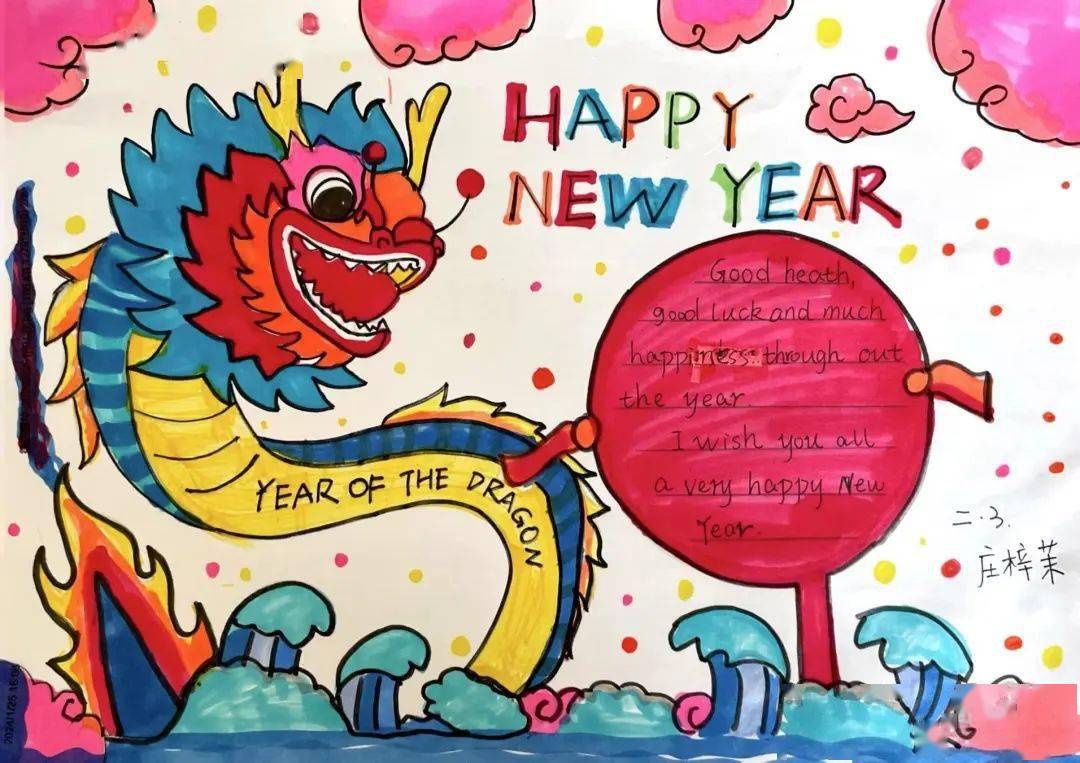 HAPPY
NEW YEAR
Good heath,
good luck and much
happiness through out
the year.
I wish you all
a very happy New
Year.
YEAR OF THE DRAGON
二.3.
庄梓茉